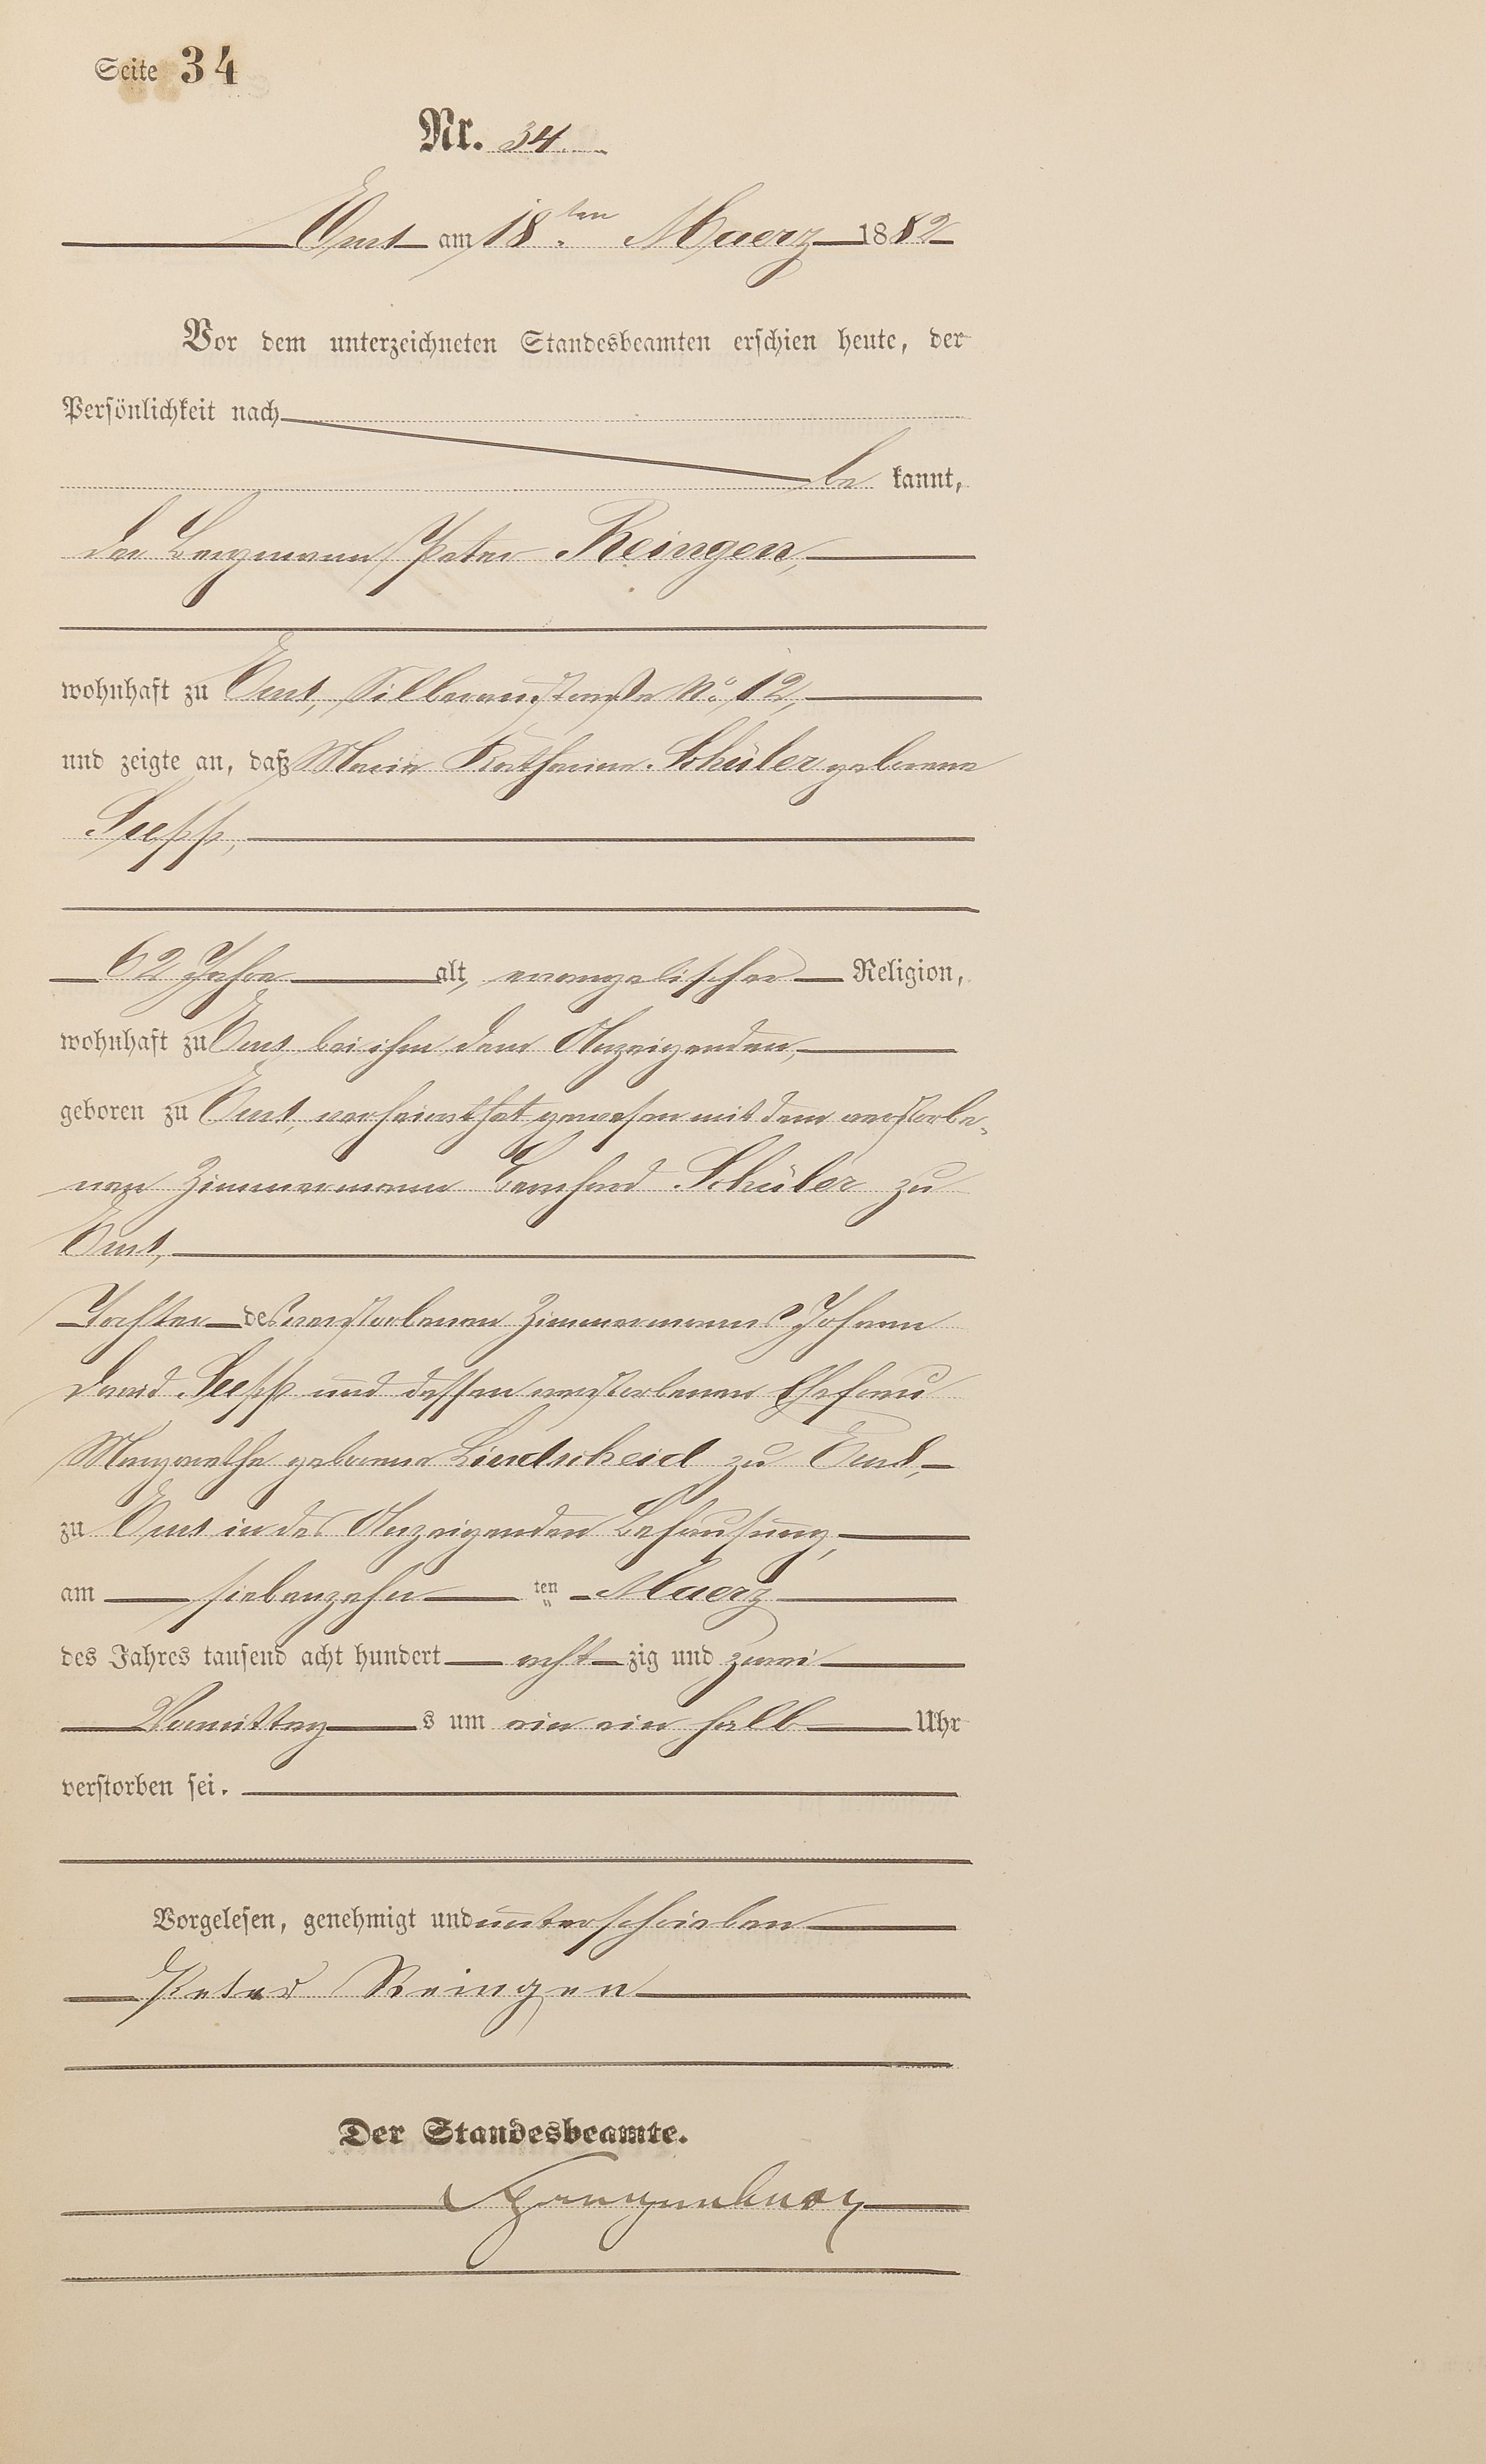 Seite 34
Nr. 34
Ems am 18ten Maerz 1882
Vor dem unterzeichneten Standesbeamten erschien heute, der
Persönlichkeit nach
be kannt,
der Bergmann Peter Reingen,
wohnhaft zu Ems, Silberaustraße No 12,
und zeigte an, daß Maria Katharina Schüler geborene
62 Jahre alt, evangelischer Religion,
wohnhaft zu Ems bei ihm dem Anzeigenden,
geboren zu Ems, verheirathet gewesen mit dem verstorbe-
nen Zimmermann Bernhard Schüler zu
Ems,
Tochter des verstorbenen Zimmermanns Johann
David und dessen verstorbenen Ehefrau
Margarethe geborene Lindscheid zu Ems,
zu Ems in des Anzeigenden Behausung,
am siebenzehn ten Maerz
des Jahres tausend acht hundert acht zig und zwei
Vormittag s um ein ein halb Uhr
verstorben sei.
Vorgelesen, genehmigt und unterschrieben
Peter Reingen
Der Standesbeamte.